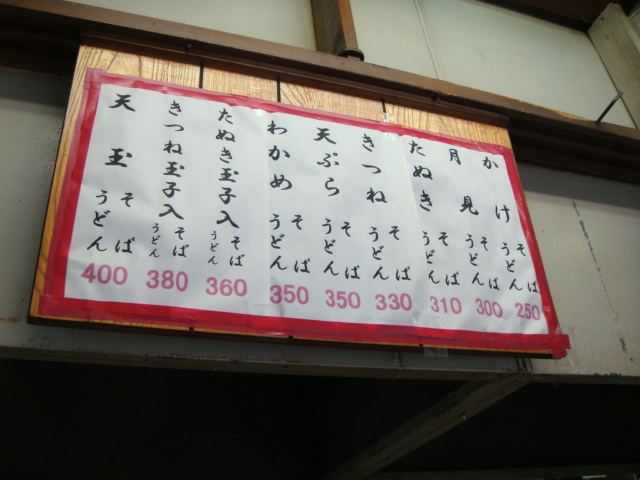 かけ そば うどん 250
月見 そば うどん 300
たぬき そば うどん 310
きつね そば うどん 330
天ぷら そば うどん 350
わかめ そば うどん 350
たぬき玉子入 そば うどん 360
きつね玉子入 そば うどん 380
天玉 そば うどん 400